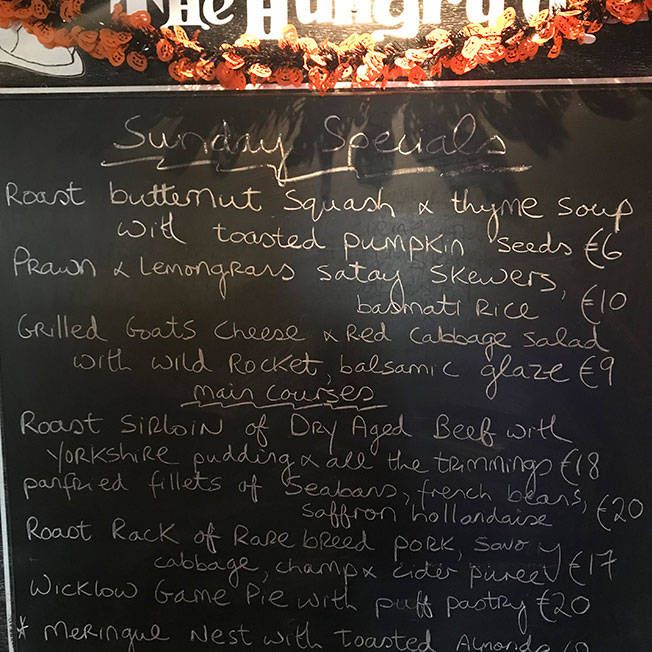 THE HUNGRY
Sunday Specials
ROAST butternut squash & thyme soup
with toasted pumpkin seeds €6
PRAWN & LEMONGRASS SATAY SKEWERS,
basmati Rice €10
GRILLED Goats Cheese & Red Cabbage salad
with wild Rocket, balsamic glaze €9
main courses
ROAST SIRLOIN of DRY Aged Beef with
YORKSHIRE pudding & all the trimmings €18
panfried fillets of Seabass, french beans,
saffron hollandaise €20
ROAST RACK of Rare breed PORK, savoy
cabbage, champ & cider puree €17
WICKLOW GAME PIE with puff pastry €20
* MERINGUE NEST with Toasted Almonds